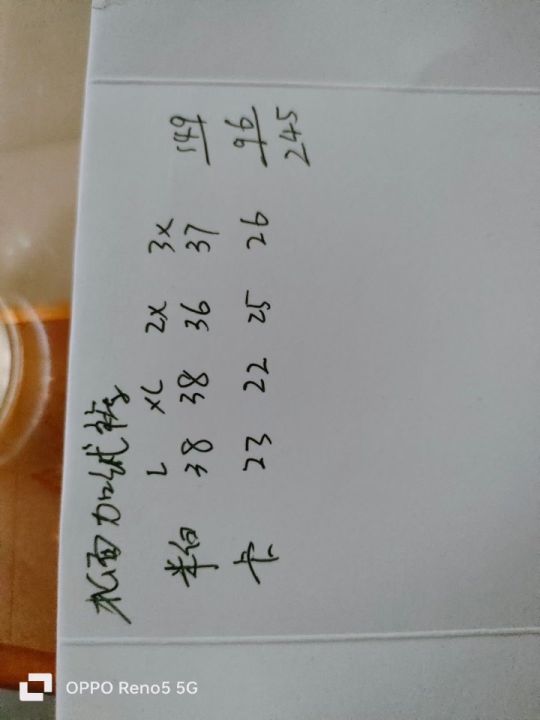 杠面加绒裤
L XL 2X 3X
米白 38 38 36 37 149
卡 23 22 25 26 96
245
OPPO Reno5 5G